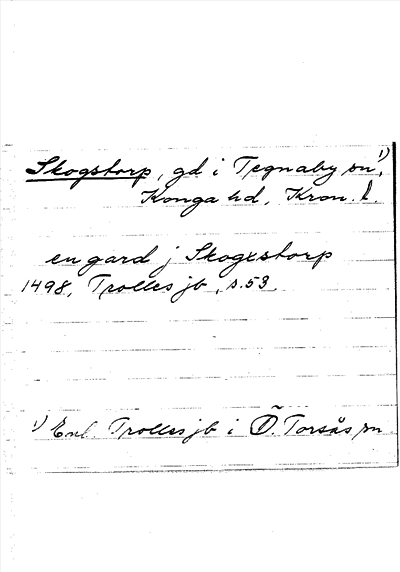 Skogstorp, gd i Tegnaby sn, 1)
Konga hd, Kron. l.
en gard j Skogxstorp
1498, Trolles jb, s. 53.
1) Enl. Trolles jb i Ö. Torsås sn